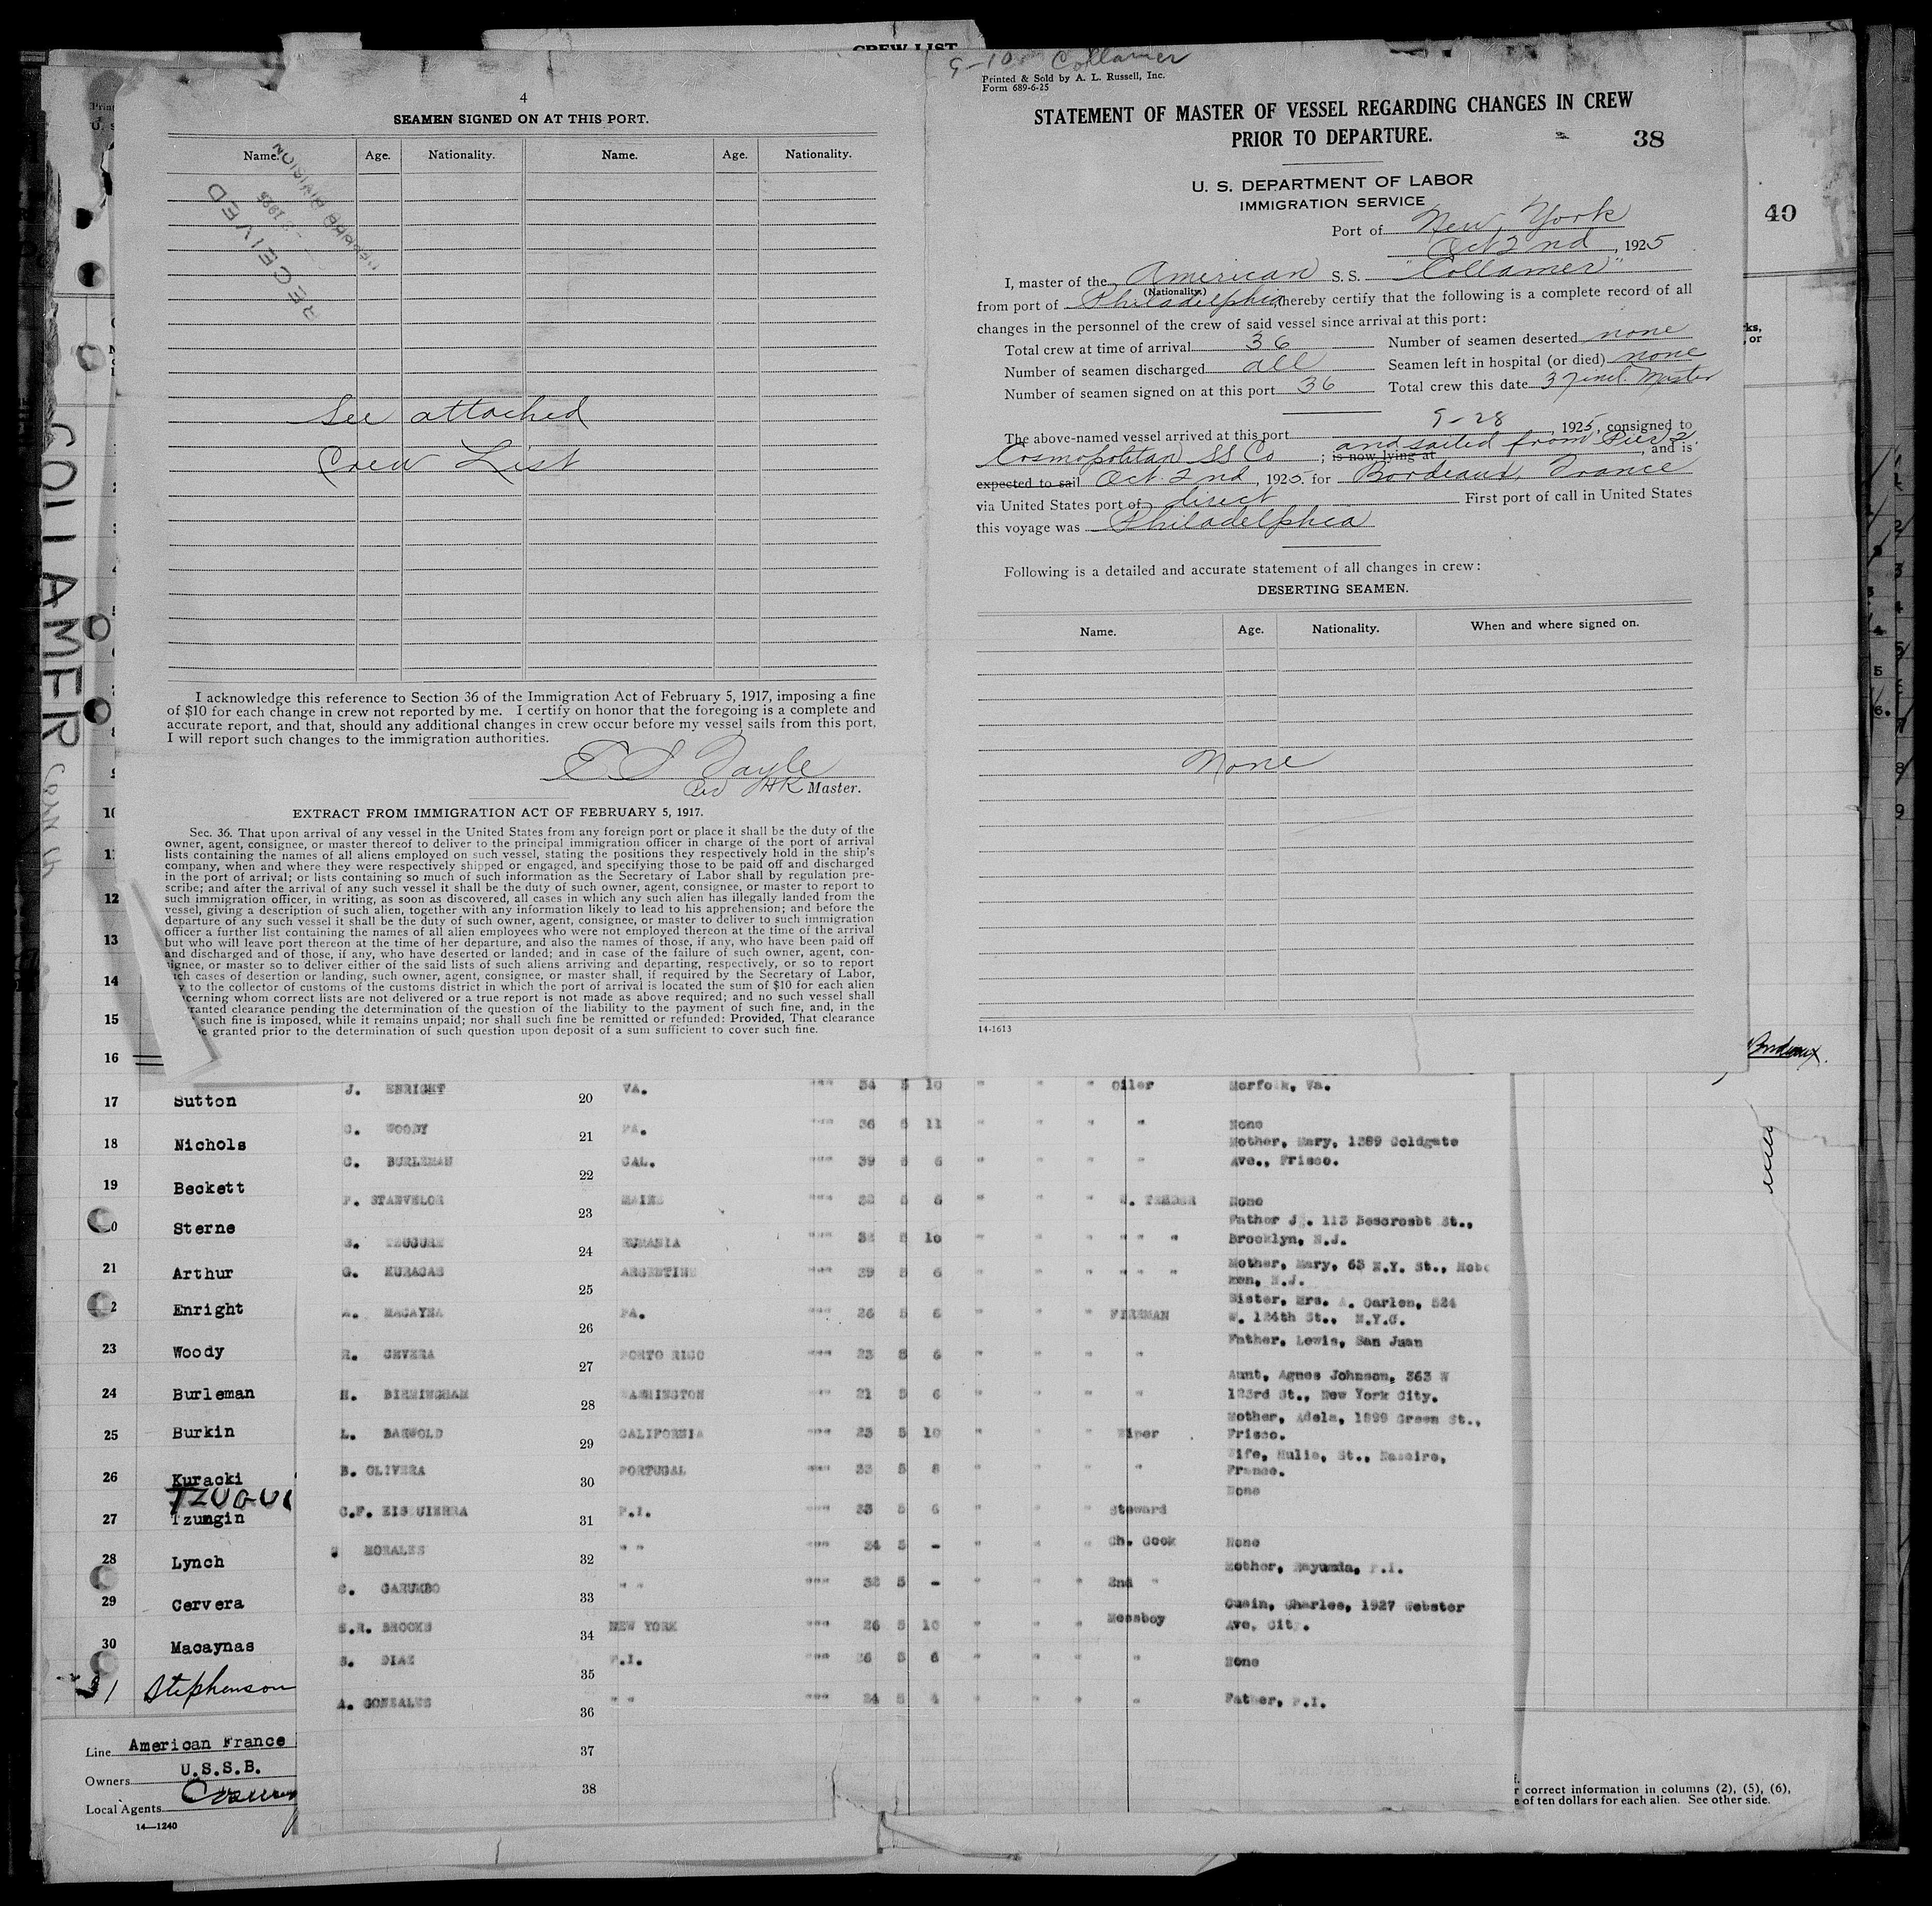 CREW LIST
4
SEAMEN SIGNED ON AT THIS PORT.
Name. Age. Nationality. Name. Age. Nationality.
RECEIVED
1925
DIVISION
See attached
Crew List
I acknowledge this reference to Section 36 of the Immigration Act of February 5, 1917, imposing a fine
of $10 for each change in crew not reported by me. I certify on honor that the foregoing is a complete and
accurate report, and that, should any additional changes in crew occur before my vessel sails from this port,
I will report such changes to the immigration authorities.
Master.
EXTRACT FROM IMMIGRATION ACT OF FEBRUARY 5, 1917.
Sec. 36. That upon arrival of any vessel in the United States from any foreign port or place it shall be the duty of the
owner, agent, consignee, or master thereof to deliver to the principal immigration officer in charge of the port of arrival
lists containing the names of all aliens employed on such vessel, stating the positions they respectively hold in the ship's
company, when and where they were respectively shipped or engaged, and specifying those to be paid off and discharged
in the port of arrival; or lists containing so much of such information as the Secretary of Labor shall by regulation pre-
scribe; and after the arrival of any such vessel it shall be the duty of such owner, agent, consignee, or master to report to
such immigration officer, in writing, as soon as discovered, all cases in which any such alien has illegally landed from the
vessel, giving a description of such alien, together with any information likely to lead to his apprehension; and before the
departure of any such vessel it shall be the duty of such owner, agent, consignee, or master to deliver to such immigration
officer a further list containing the names of all alien employees who were not employed thereon at the time of the arrival
but who will leave port thereon at the time of her departure, and also the names of those, if any, who have been paid off
and discharged and of those, if any, who have deserted or landed; and in case of the failure of such owner, agent, con-
signee, or master so to deliver either of the said lists of such aliens arriving and departing, respectively, or so to report
such cases of desertion or landing, such owner, agent, consignee, or master shall, if required by the Secretary of Labor,
to the collector of customs of the customs district in which the port of arrival is located the sum of $10 for each alien
cerning whom correct lists are not delivered or a true report is not made as above required; and no such vessel shall
ranted clearance pending the determination of the question of the liability to the payment of such fine, and, in the
such fine is imposed, while it remains unpaid; nor shall such fine be remitted or refunded: Provided, That clearance
granted prior to the determination of such question upon deposit of a sum sufficient to cover such fine.
9-10 Collamer
Printed & Sold by A. L. Russell, Inc.
Form 689-6-25
STATEMENT OF MASTER OF VESSEL REGARDING CHANGES IN CREW
PRIOR TO DEPARTURE.
38
U. S. DEPARTMENT OF LABOR
IMMIGRATION SERVICE
Port of New York
Oct 2nd, 1925
I, master of the American S. S. "Collamer"
(Nationality.)
from port of Philadelphia, hereby certify that the following is a complete record of all
changes in the personnel of the crew of said vessel since arrival at this port:
Total crew at time of arrival 36 Number of seamen deserted none
Number of seamen discharged all Seamen left in hospital (or died) none
Number of seamen signed on at this port 36 Total crew this date 37 incl. Master
The above-named vessel arrived at this port 9-28, 1925, consigned to
Cosmopolitan SS Co; is now lying at and sailed from Pier 2, and is
expected to sail Oct. 2nd, 1925. for Bordeaux, France
via United States port of direct First port of call in United States
this voyage was Philadelphia
Following is a detailed and accurate statement of all changes in crew:
DESERTING SEAMEN.
Name. Age. Nationality. When and where signed on.
None
14-1613
40
Bordeaux.
COLLAMER
10
11
12
13
14
15
16
17 Sutton
18 Nichols
19 Beckett
Sterne
21 Arthur
Enright
23 Woody
24 Burleman
25 Burkin
26 Kuracki
27 Tzumgin
28 Lynch
29 Cervera
30 Macaynas
31 Stephenson
Line American France
Owners U.S.S.B.
Local Agents
14—1240
J. ENRIGHT 20 VA. """ 34 5 10 " " " Oiler Norfolk, Va.
C. WOODY 21 PA. """ 36 5 11 " " " " None
C. BURLEMAN 22 CAL. """ 39 5 6 " " " " Mother, Mary, 1389 Coldgate
Ave., Frisco.
F. STANVELOR 23 MAINE """ 5 6 " " " W. TENDER None
24 RUMANIA """ 5 10 " " " " " " Father J. 113 St.,
Brooklyn, N.J.
G. KURACAS 25 ARGENTINE """ 29 5 6 " " " " " " Mother, Mary, 63 N.Y. St., Hobo
ken, N.J.
MACAYNA 26 PA. """ 26 5 6 " " " FIREMAN Sister, Mrs. A. Carlen, 524
W. 124th St., N.Y.C.
R. CEVERA 27 PORTO RICO """ 23 5 6 " " " " Father, Lewis, San Juan
H. BIRMINGHAM 28 WASHINGTON """ 21 5 6 " " " " Aunt, Agnes Johnson, 363 W
123rd St., New York City.
L. BARWOLD 29 CALIFORNIA """ 23 5 10 " " " Wiper Mother, Adela, 1899 Green St.,
Frisco.
B. OLIVERA 30 PORTUGAL """ 33 5 8 " " " " Wife, Hulia, St., Nazaire,
France.
C.F. EISQUIERRA 31 P.I. """ 33 5 6 " " " Steward None
MORALES 32 " " """ 34 5 - " " " Ch. Cook None
C. GARUMBO 33 " " """ 5 - " " " 2nd " Mother, Mayumda, P.I.
S.R. BROOKS 34 NEW YORK """ 26 5 10 " " " Messboy Cusin, Charles, 1927 Webster
Ave, City.
S. DIAZ 35 P.I. """ 26 5 6 " " " " None
A. GONZALES 36 " " """ 24 5 4 " " " " Father, P.I.
37
38
correct information in columns (2), (5), (6),
of ten dollars for each alien. See other side.